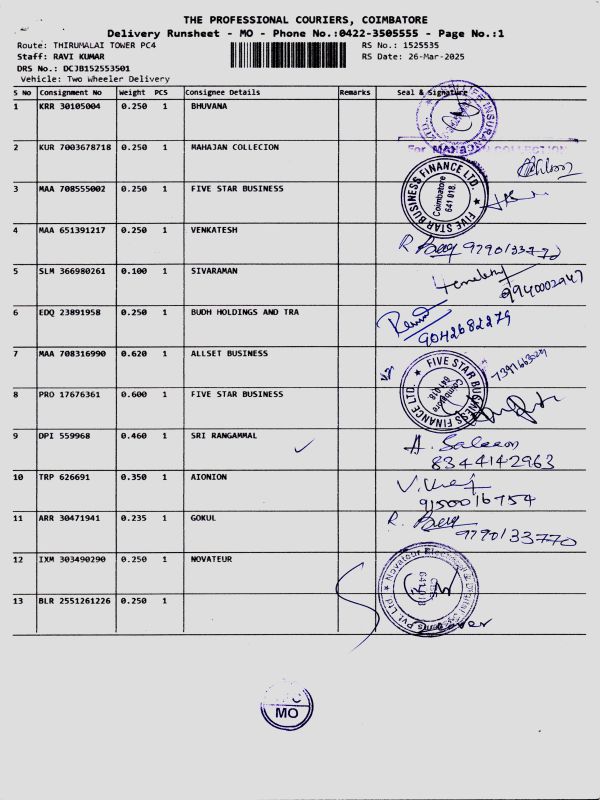 THE PROFESSIONAL COURIERS, COIMBATORE
Delivery Runsheet - MO - Phone No.:0422-3505555 - Page No.:1
Route: THIRUMALAI TOWER PC4 RS No.: 1525535
Staff: RAVI KUMAR RS Date: 26-Mar-2025
DRS No.: DCJB152553501
Vehicle: Two Wheeler Delivery
S No Consignment No Weight PCS Consignee Details Remarks Seal & Signature
1 KRR 30105004 0.250 1 BHUVANA
LIFE INSURANCE
2 KUR 7003678718 0.250 1 MAHAJAN COLLECION
For MAHAJAN COLLECTION
3 MAA 708555002 0.250 1 FIVE STAR BUSINESS
★ FIVE STAR BUSINESS FINANCE LTD.
Coimbatore
641 018.
4 MAA 651391217 0.250 1 VENKATESH
R. 9790133770
5 SLM 366980261 0.100 1 SIVARAMAN
9940002947
6 EDQ 23891958 0.250 1 BUDH HOLDINGS AND TRA
9042682279
7 MAA 708316990 0.620 1 ALLSET BUSINESS
8 PRO 17676361 0.600 1 FIVE STAR BUSINESS
★ FIVE STAR BUSINESS FINANCE LTD.
Coimbatore
641 018
9 DPI 559968 0.460 1 SRI RANGAMMAL
8344142963
10 TRP 626691 0.350 1 AIONION
9150016754
11 ARR 30471941 0.235 1 GOKUL
R. 9790133770
12 IXM 303490290 0.250 1 NOVATEUR
★ Novateur Electrical & Digital Pvt. Ltd
CBE
641 018
13 BLR 2551261226 0.250 1
MO